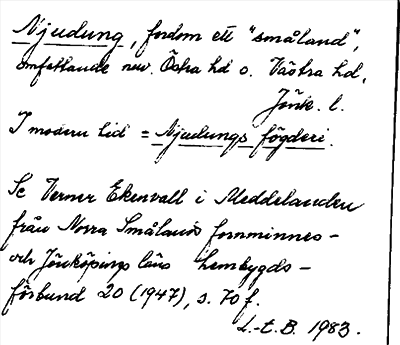 Njudung, fordom ett "småland",
omfattande nuv. Östra hd o. Västra hd,
Jönk. l.
I modern tid = Njudungs fögderi.
Se Verner Ekenvall i Meddelanden
från Norra Smålands fornminnes-
och Jönköpings läns hembygds-
förbund 20 (1947), s. 70 f.
L.-E. B. 1983.